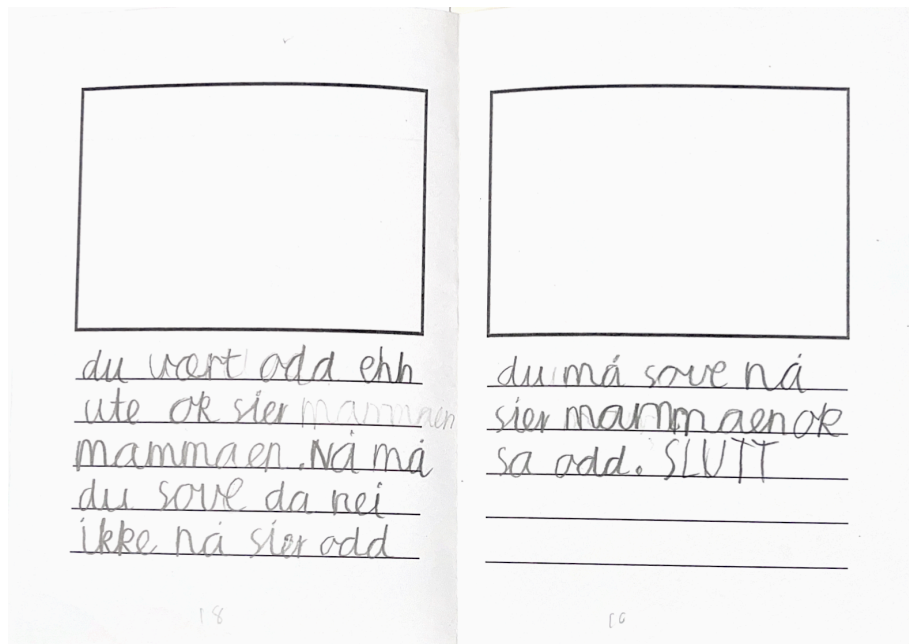 du vært odd ehh
ute ok sier
mammaen. Nå må
du sove da nei
ikke nå sier odd
18
du må sove nå
sier mammaen ok
sa odd. SLUTT